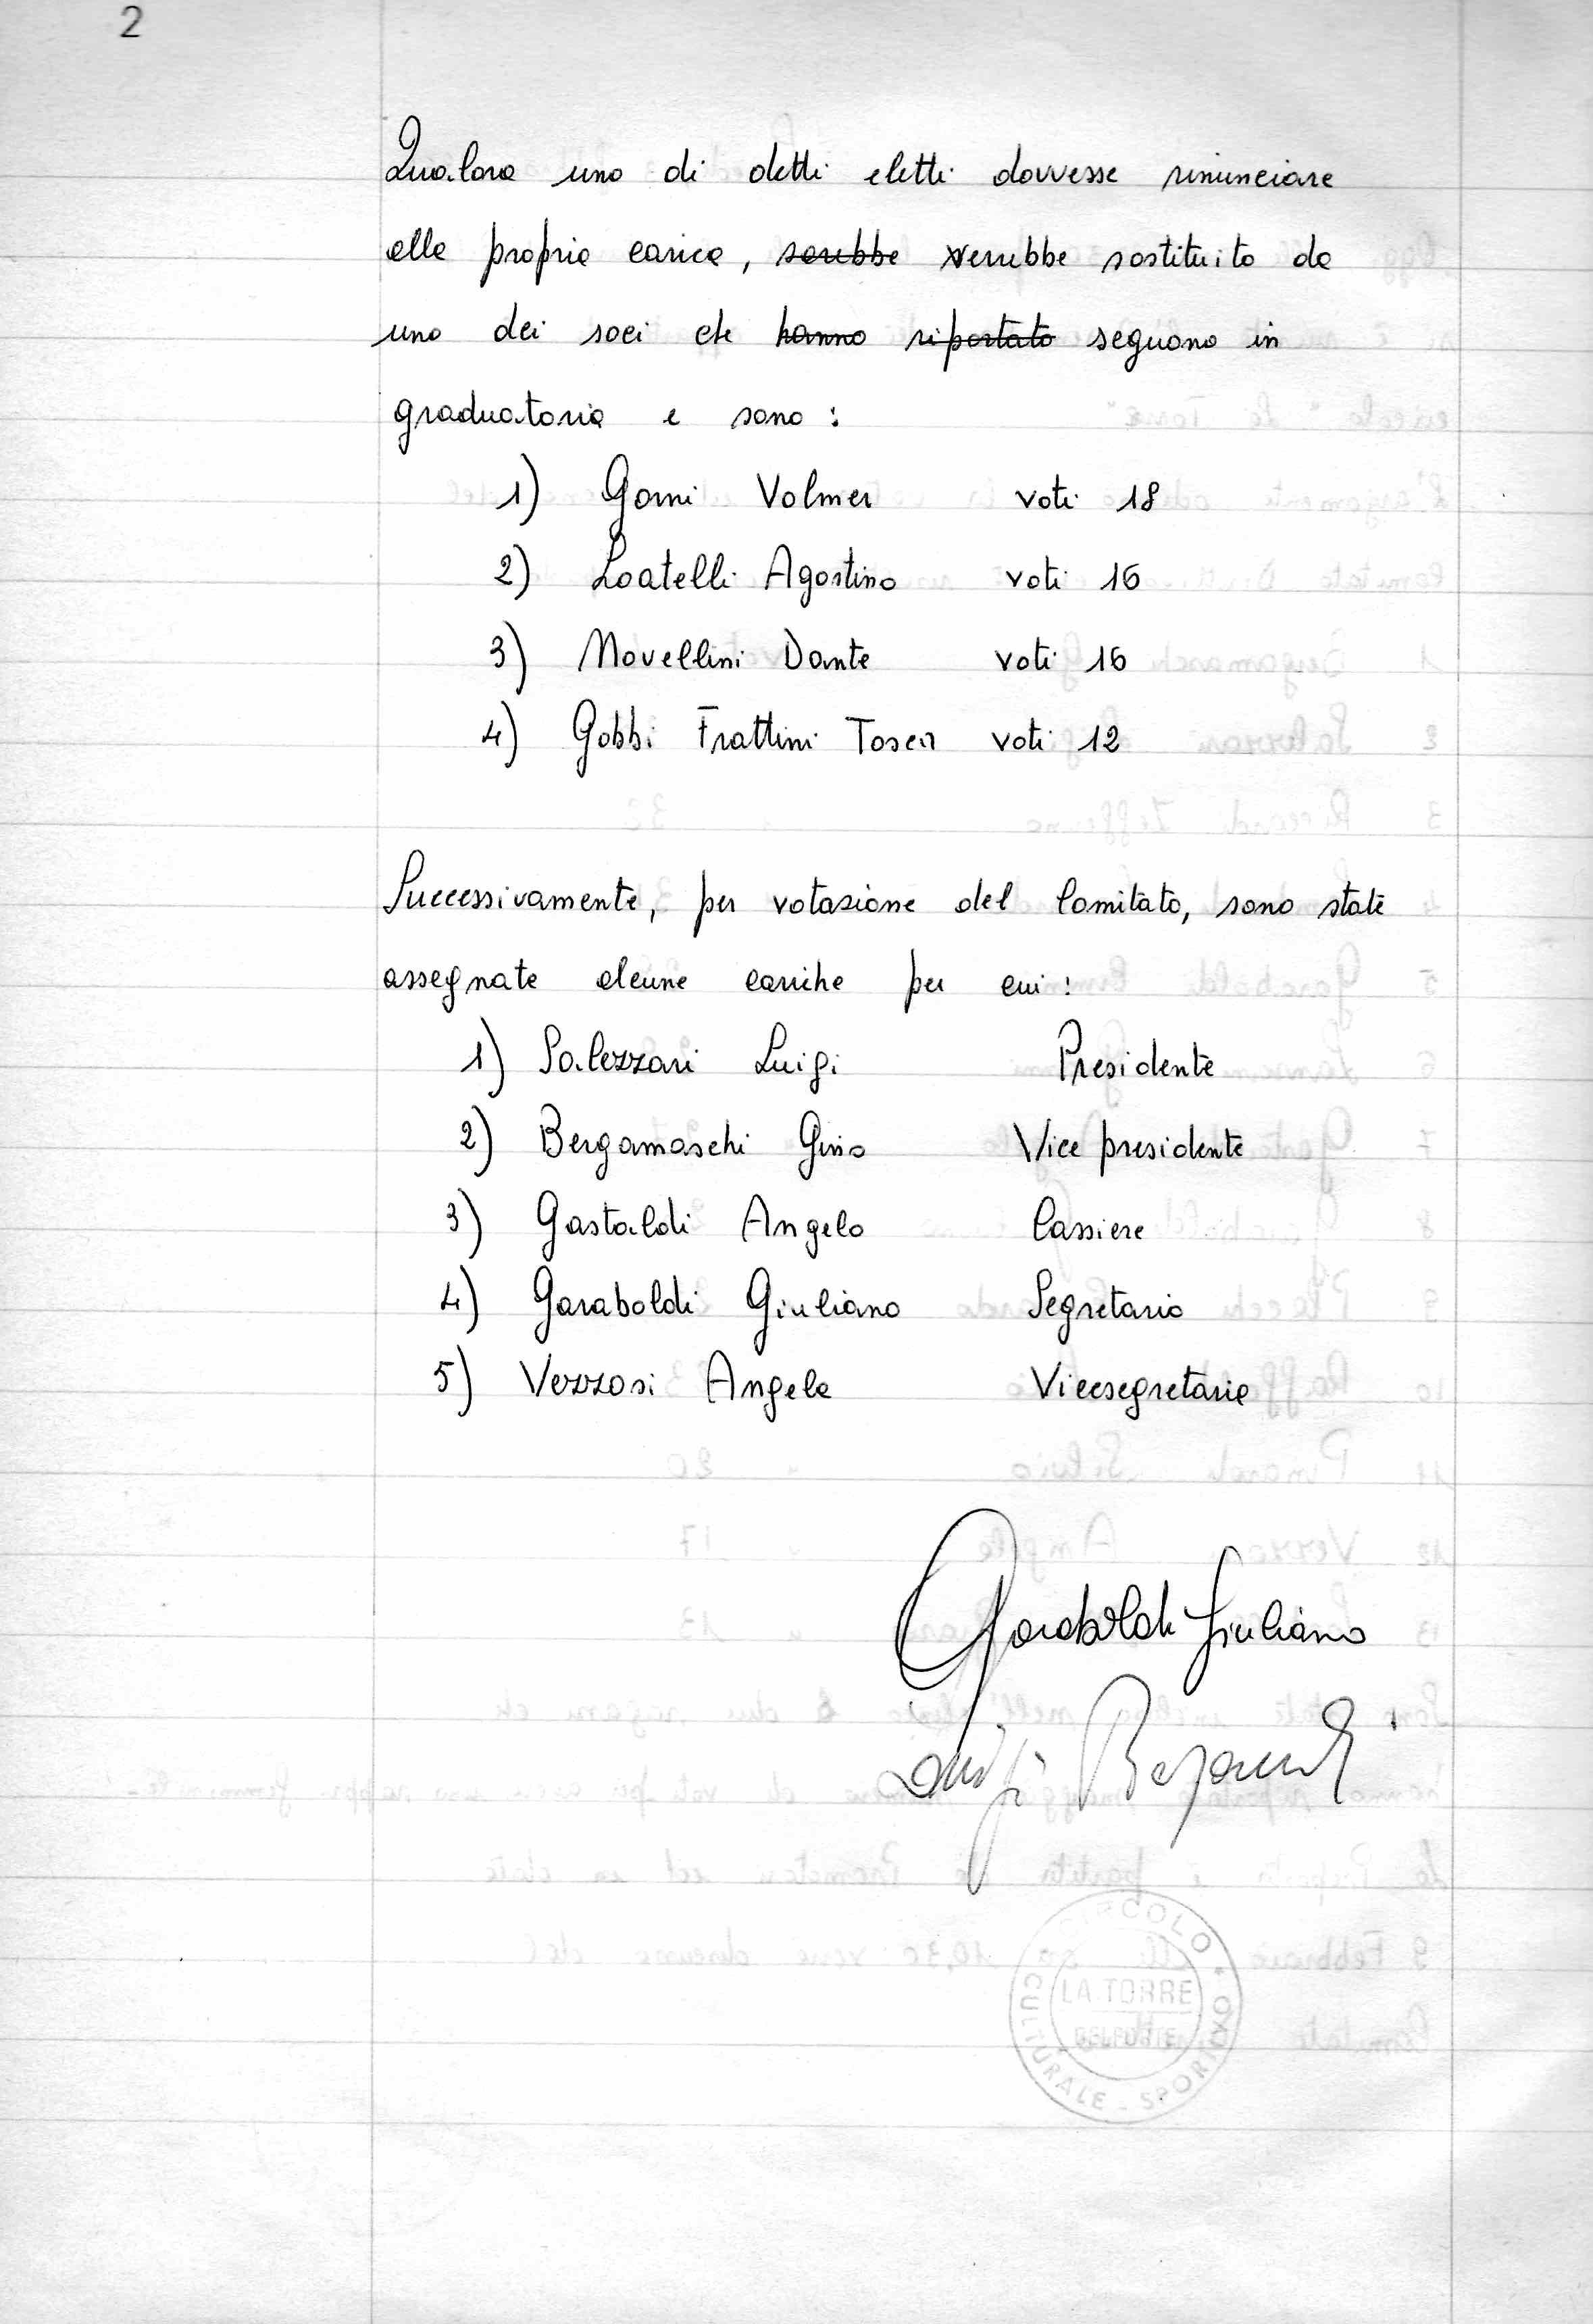 2
Qualora uno di detti eletti dovvesse rinunciare
alla propria carica, sarebbe verrebbe sostituito da
uno dei soci che hanno riportato seguono in
graduatoria e sono:
1) Gorni Volmer voti 18
2) Loatelli Agostino voti 16
3) Novellini Dante voti 16
4) Gobbi Frattini Tosca voti 12
Successivamente, per votazione del Comitato, sono state
assegnate alcune cariche per cui:
1) Salezzari Luigi Presidente
2) Bergamaschi Gino Vice presidente
3) Gastaldi Angelo Cassiere
4) Garaboldi Giuliano Segretario
5) Vezzosi Angela Vicesegretaria
Garaboldi Giuliano
Luigi
CIRCOLO
LA TORRE
CULTURALE - SPORTIVO